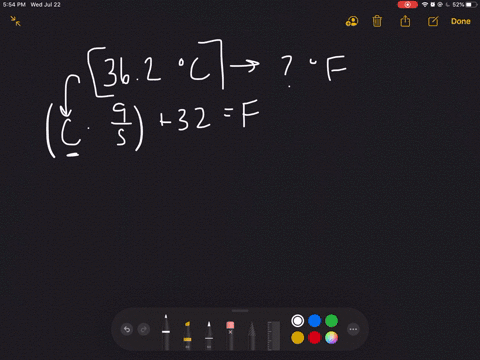 5:54 PM Wed Jul 22
52%
Done
[36.2 °C] → ? °F
(C · 9/5) + 32 = F